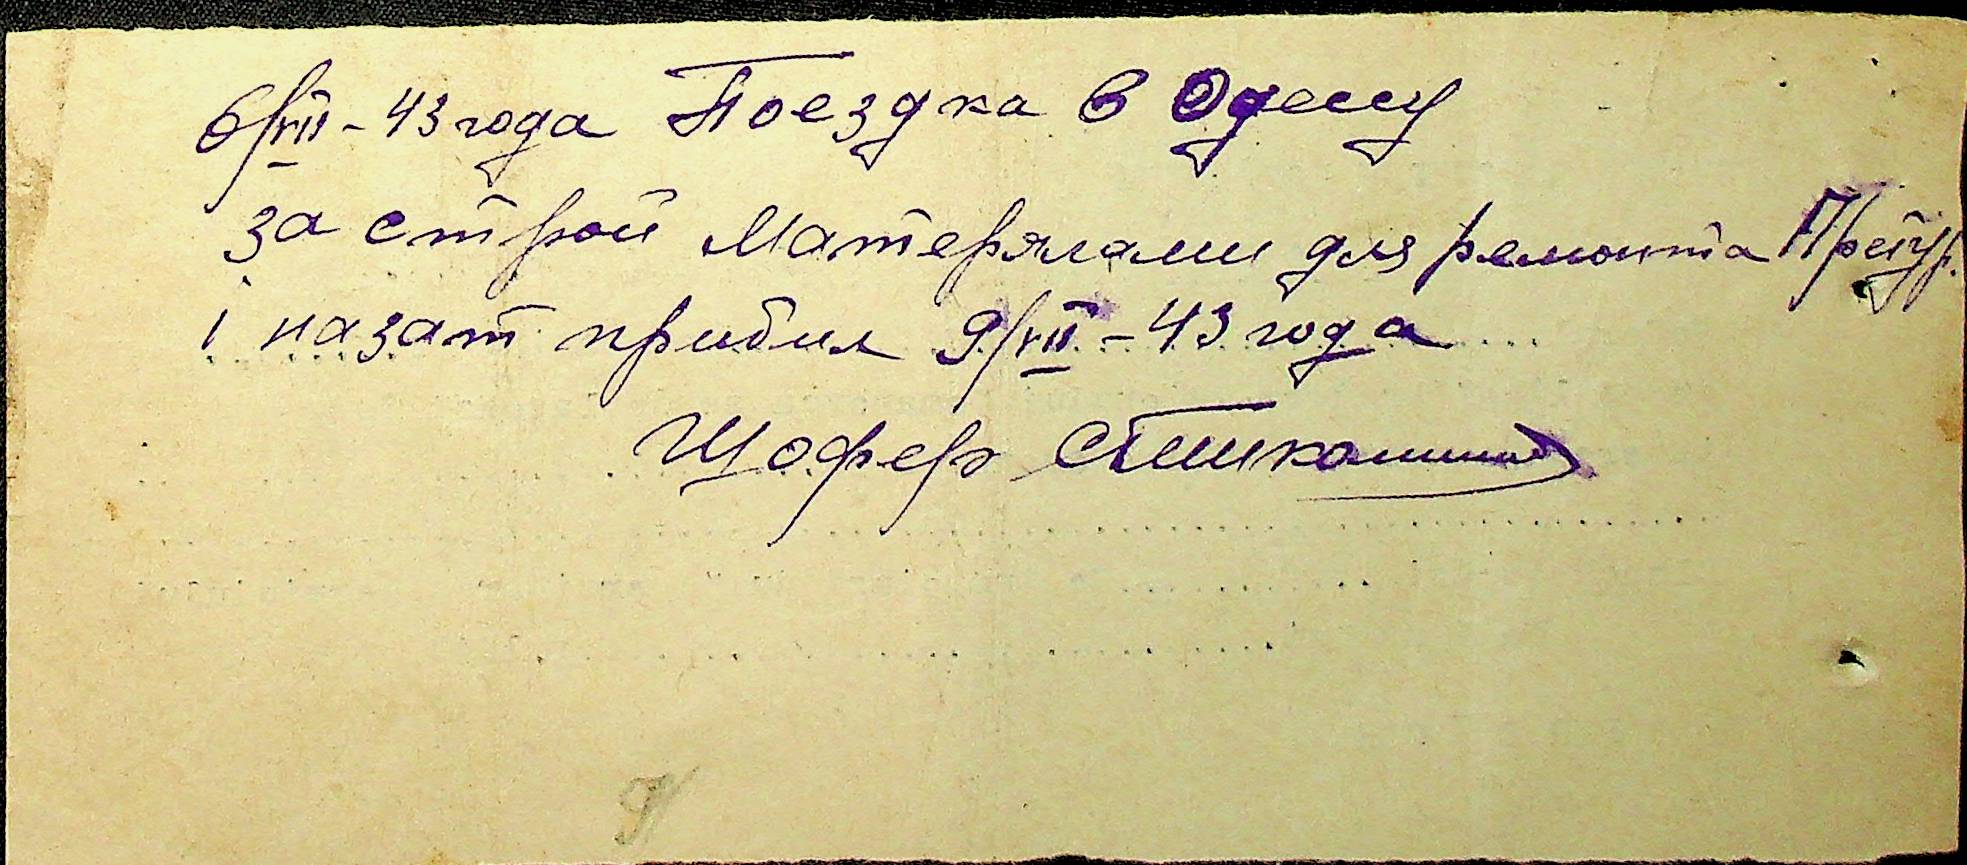 6/VII - 43 года Поездка в Одессу
за строй Матерялами для ремонта Претур.
і назат прибил 9/VII - 43 года
Шофер